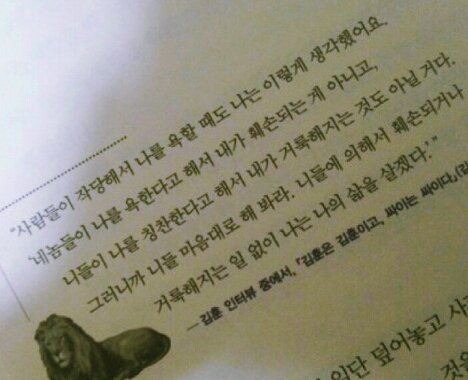 "사람들이 작당해서 나를 욕할 때도 나는 이렇게 생각했어요.
'네놈들이 나를 욕한다고 해서 내가 훼손되는 게 아니고,
니들이 나를 칭찬한다고 해서 내가 거룩해지는 것도 아닐 거다.
그러니까 니들 마음대로 해 봐라. 니들에 의해서 훼손되거나
거룩해지는 일 없이 나는 나의 삶을 살겠다.'"
—김훈 인터뷰 중에서, 「김훈은 김훈이고, 싸이는 싸이다」(김
일단 덮어놓고 사
것을